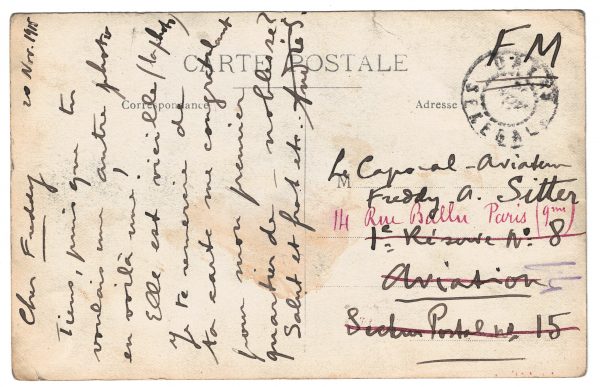 CARTE POSTALE
Correspondance
Adresse
20 Nov. 1915
Cher Freddy
Tiens, puisque tu
voulais une autre photo
en voilà une,
Elle est vieille (la photo)
Je te remercie de
ta carte me congratulant
pour mon premier
quartier de noblesse?
Salut et frat et.
FM
DAKAR
SENEGAL
M
Le Caporal-Aviateur
Freddy A. Sitter
14 Rue Ballu Paris (9me)
1e Réserve No 8
Aviation
Secteur Postal No 15